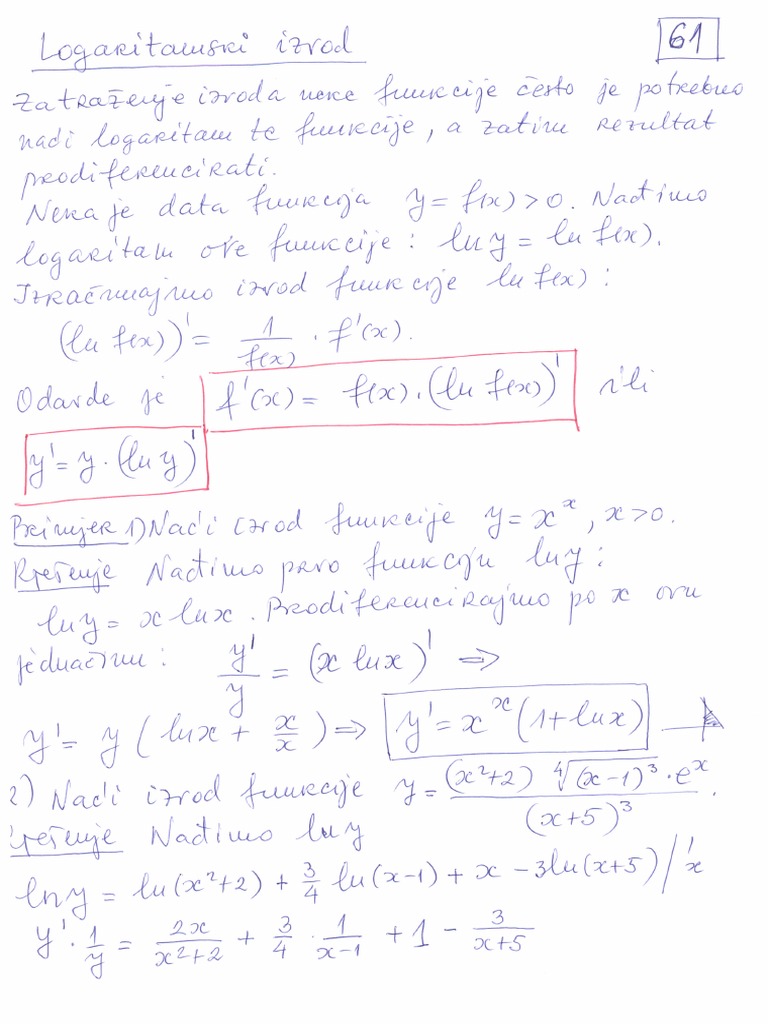 Logaritamski izvod 61
Za traženje izvoda neke funkcije često je potrebno
naći logaritam te funkcije, a zatim rezultat
prodiferencirati.
Neka je data funkcija y = f(x) > 0. Nađimo
logaritam ove funkcije : ln y = ln f(x).
Izračunajmo izvod funkcije ln f(x) :
(ln f(x))' = 1/f(x) · f'(x).
Odavde je f'(x) = f(x) · (ln f(x))' ili
y' = y · (ln y)'
Primjer 1) Naći izvod funkcije y = x^x, x > 0.
Rješenje Nađimo prvo funkciju ln y :
ln y = x ln x. Prodiferencirajmo po x ovu
jednačinu : y'/y = (x ln x)' ⇒
y' = y ( ln x + x/x ) ⇒ y' = x^x (1 + ln x)
2) Naći izvod funkcije y = (x²+2) ∜(x-1)³ · e^x / (x+5)³.
rješenje Nađimo ln y
ln y = ln(x²+2) + 3/4 ln(x-1) + x - 3ln(x+5) /'x
y' · 1/y = 2x/(x²+2) + 3/4 · 1/(x-1) + 1 - 3/(x+5)